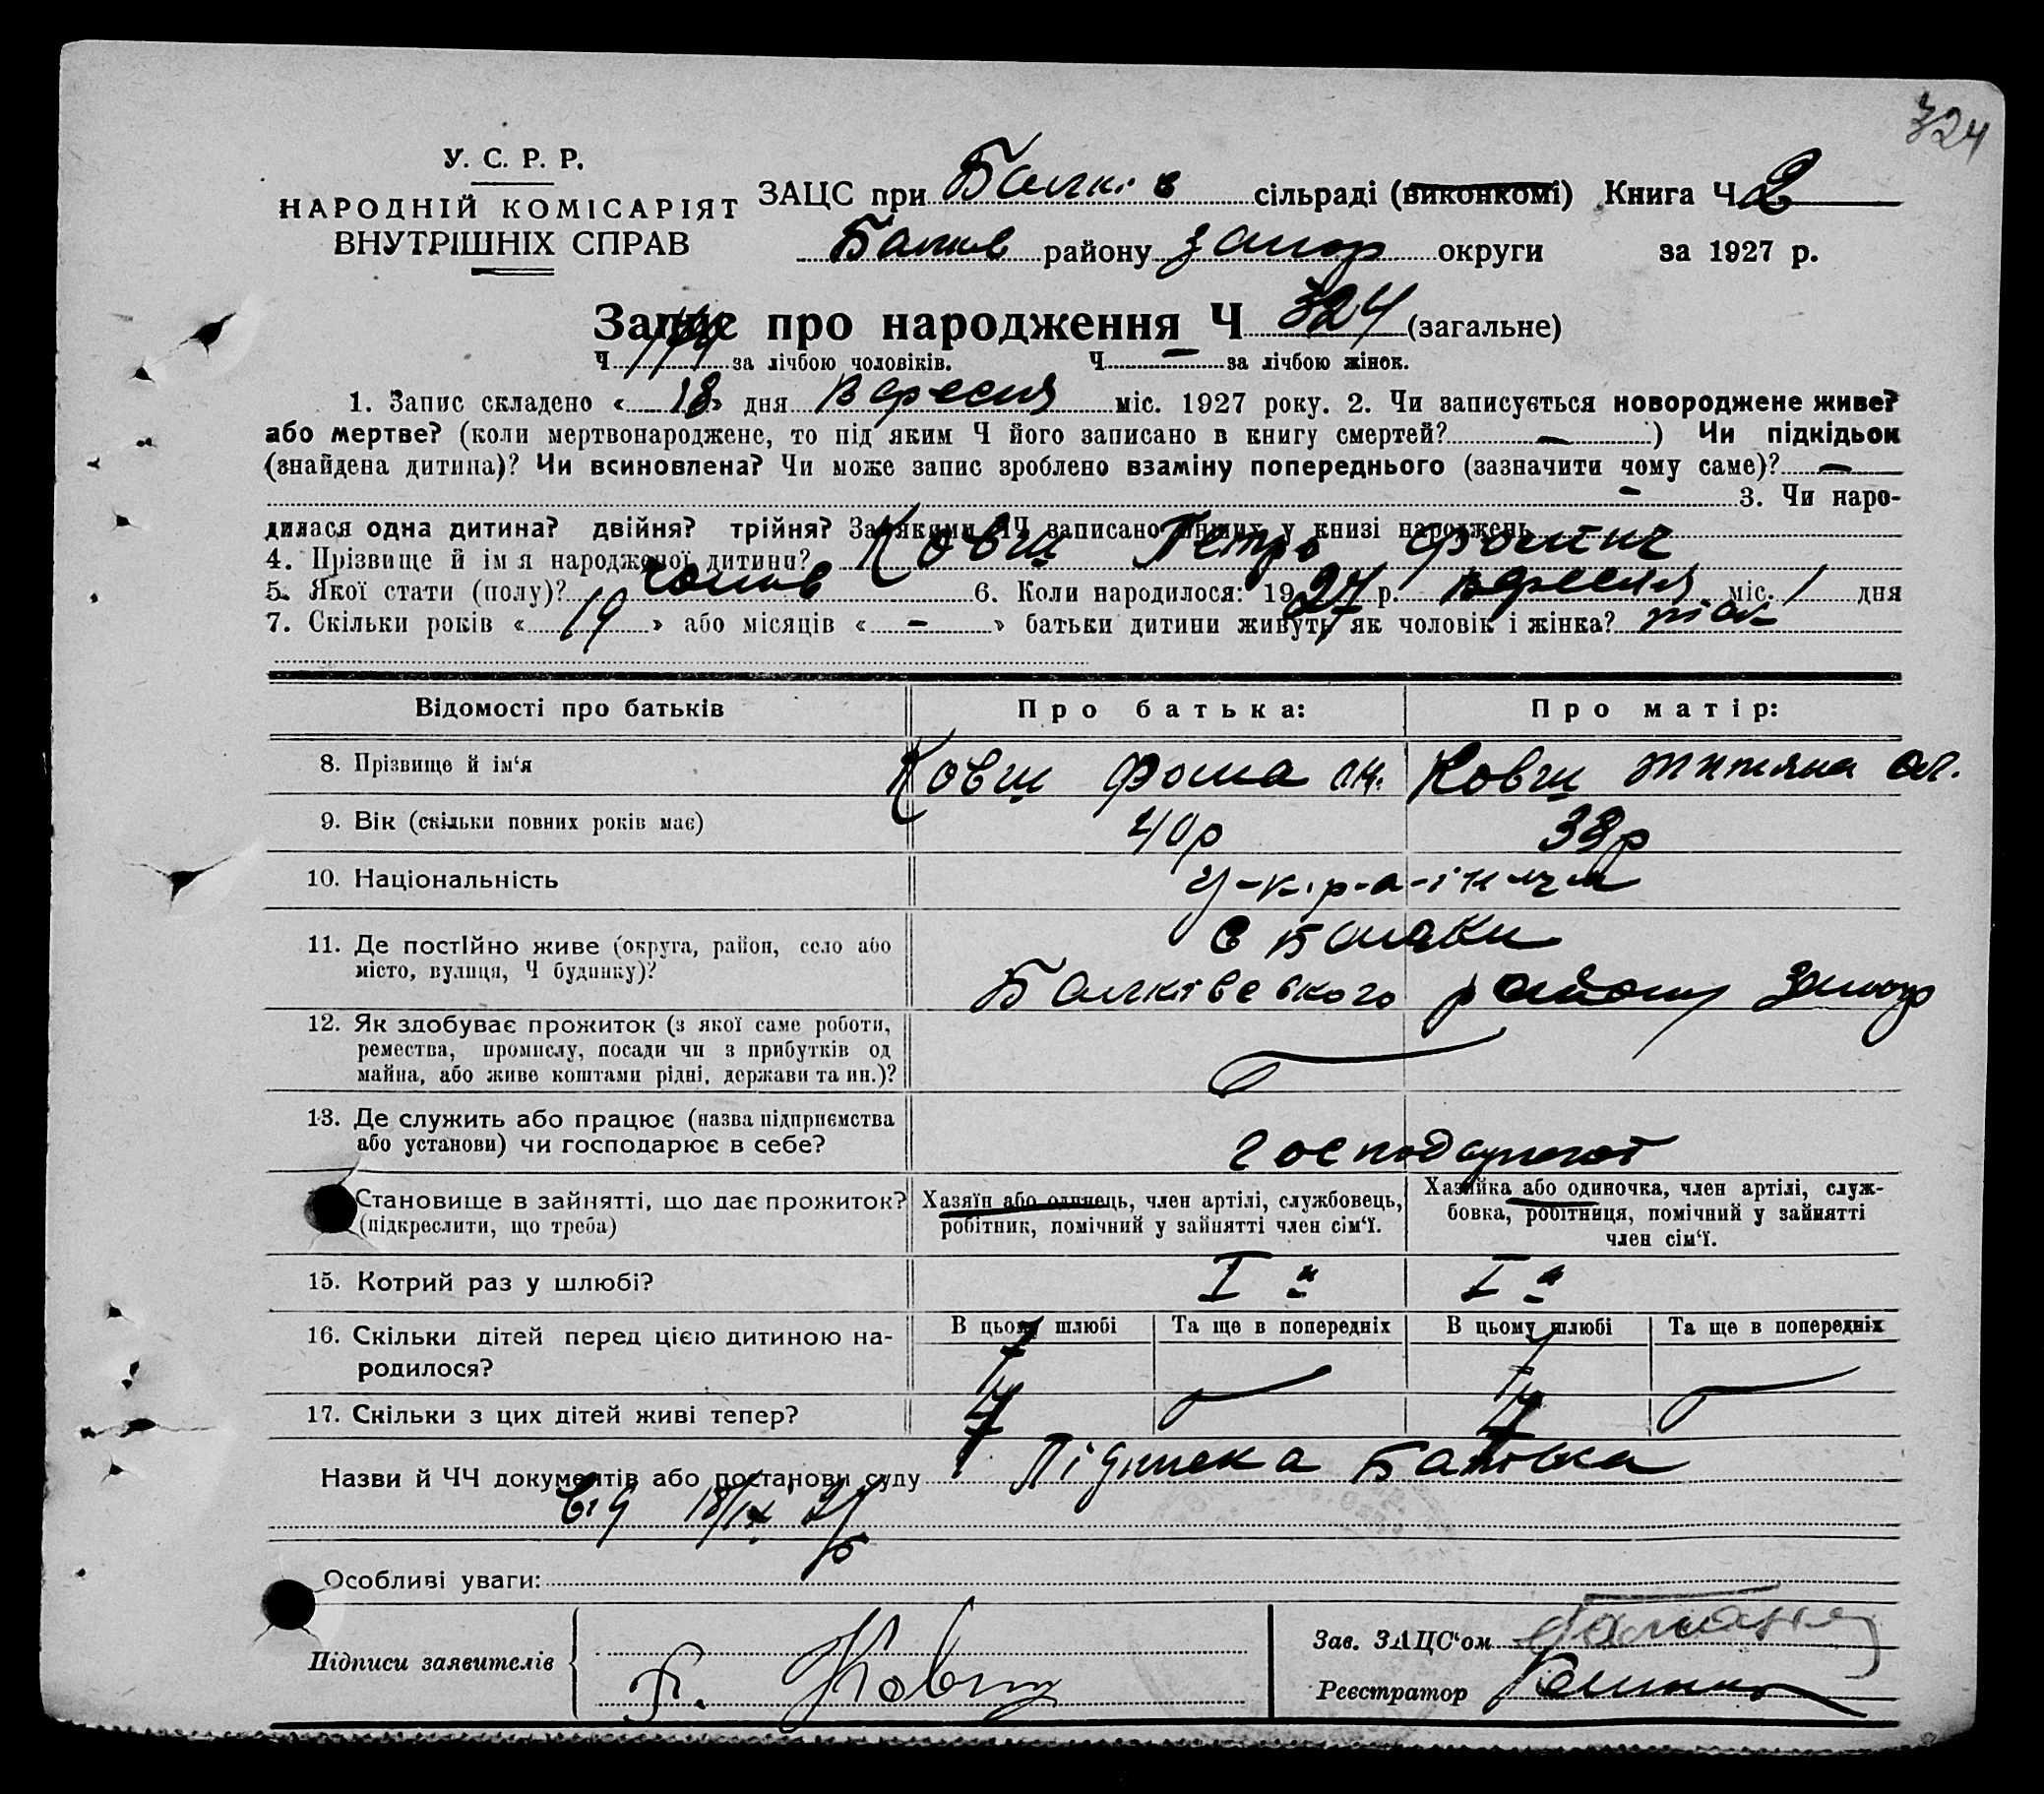 324
У. С. Р. Р.
НАРОДНІЙ КОМІСАРІЯТ
ВНУТРІШНІХ СПРАВ
ЗАЦС при Балків сільраді (виконкомі) Книга Ч 2
Балків району Запор округи за 1927 р.
Запис про народження Ч 324 (загальне)
Ч за лічбою чоловіків. Ч — за лічбою жінок.
1. Запис складено « 18 » дня Вересня міс. 1927 року. 2. Чи записується новороджене живе?
або мертве? (коли мертвонароджене, то під яким Ч його записано в книгу смертей? — ) Чи підкідьок
(знайдена дитина)? Чи всиновлена? Чи може запис зроблено взаміну попереднього (зазначити чому саме)? —
— 3. Чи наро-
дилася одна дитина? двійня? трійня? За якими ЧЧ записано инших у книзі народжень
4. Прізвище й ім я народженої дитини? Ковш Петро Фомич
5. Якої стати (полу)? чолов 6. Коли народилося: 1927 р. вересня міс. 1 дня
7. Скільки років « 19 » або місяців « — » батьки дитини живуть як чоловік і жінка? так
Відомості про батьків Про батька: Про матір:
8. Прізвище й ім‘я Ковш Фома Ковш Титяна
9. Вік (скільки повних років має) 40р 38р
10. Національність У-к-р-а-ї-н-ц-і
11. Де постійно живе (округа, район, село або
місто, вулиця, Ч будинку)?
с Балки
Балківського району Запор
12. Як здобуває прожиток (з якої саме роботи,
ремества, промислу, посади чи з прибутків од
майна, або живе коштами рідні, держави та ин.)?
13. Де служить або працює (назва підприємства
або установи) чи господарює в себе?
господарюют
Становище в зайнятті, що дає прожиток?
(підкреслити, що треба)
Хазяїн або одинець, член артілі, службовець,
робітник, помічний у зайнятті член сім‘ї.
Хазяйка або одиночка, член артілі, служ-
бовка, робітниця, помічний у зайнятті
член сім‘ї.
15. Котрий раз у шлюбі? I й I а
16. Скільки дітей перед цією дитиною на-
родилося?
В цьому шлюбі Та ще в попередніх В цьому шлюбі Та ще в попередніх
17. Скільки з цих дітей живі тепер?
Назви й ЧЧ документів або постанови суду Підписка Батька
від 18/IX 27
Особливі уваги:
Підписи заявителів Ковш
Зав. ЗАЦС‘ом
Реєстратор